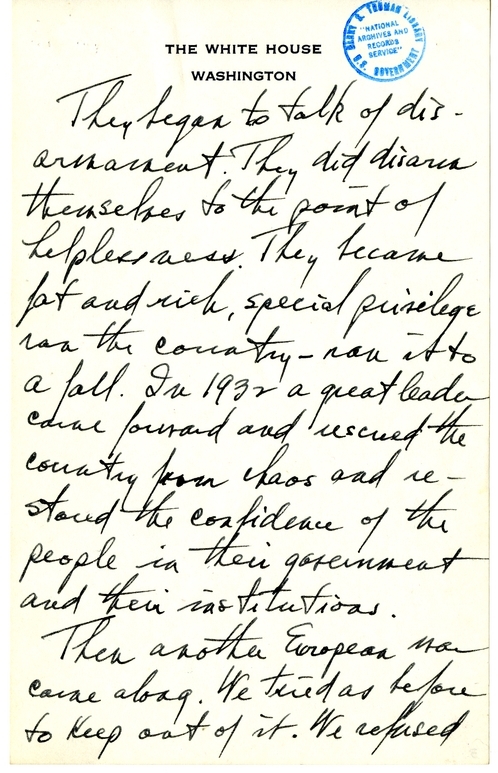 THE WHITE HOUSE
WASHINGTON
HARRY S. TRUMAN LIBRARY
"NATIONAL
ARCHIVES AND
RECORDS
SERVICE"
U.S. GOVERNMENT
They began to talk of dis-
armament. They did disarm
themselves to the point of
helplessness. They became
fat and rich, special privilege
ran the country – ran it to
a fall. In 1932 a great leader
came forward and rescued the
country from chaos and re-
stored the confidence of the
people in their government
and their institutions.
Then another European war
came along. We tried as before
to keep out of it. We refused